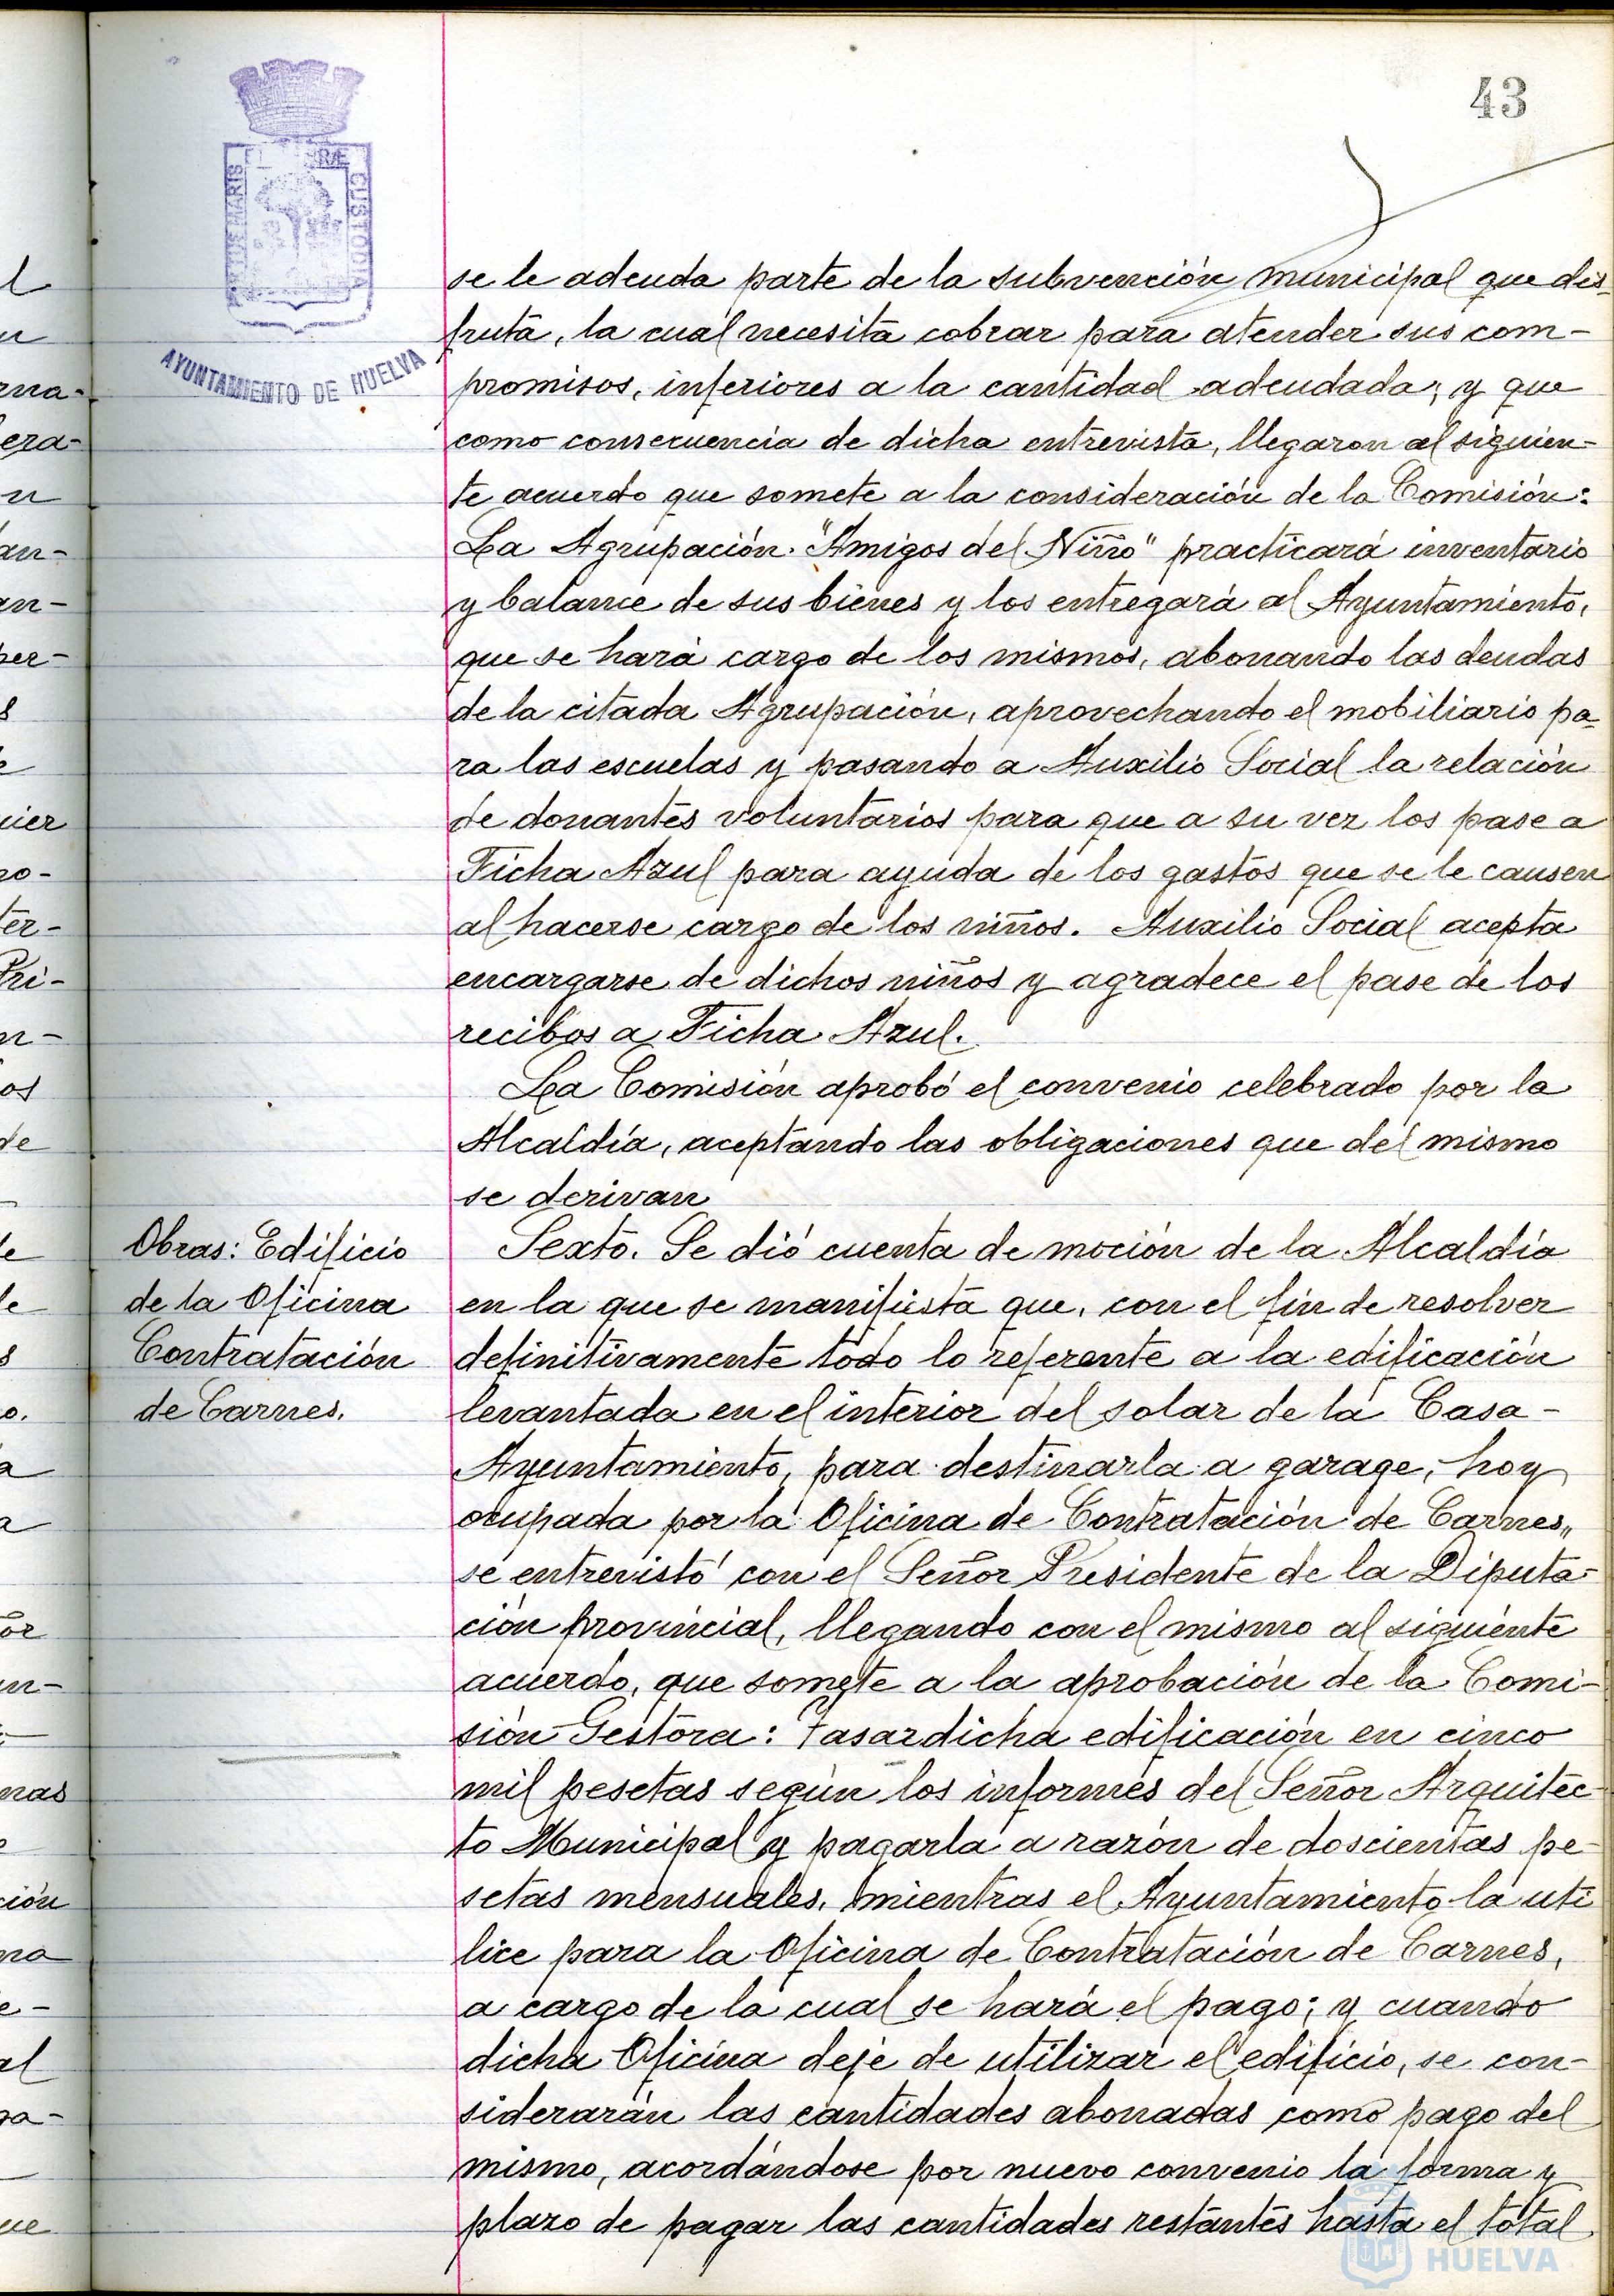 43
PORTUS MARIS ET TERRÆ CUSTODIA
AYUNTAMIENTO DE HUELVA
se le adeuda parte de la subvención municipal que dis-
fruta, la cual necesita cobrar para atender sus com-
promisos, inferiores a la cantidad adeudada; y que
como consecuencia de dicha entrevista, llegaron al siguien-
te acuerdo que somete a la consideración de la Comisión:
La Agrupación "Amigos del Niño" practicará inventario
y balance de sus bienes y los entregará al Ayuntamiento,
que se hará cargo de los mismos, abonando las deudas
de la citada Agrupación, aprovechando el mobiliario pa-
ra las escuelas y pasando a Auxilio Social la relación
de donantes voluntarios para que a su vez los pase a
Ficha Azul para ayuda de los gastos que se le causen
al hacerse cargo de los niños. Auxilio Social acepta
encargarse de dichos niños y agradece el pase de los
recibos a Ficha Azul.
La Comisión aprobó el convenio celebrado por la
Alcaldía, aceptando las obligaciones que del mismo
se derivan
Obras: Edificio
de la Oficina
Contratación
de Carnes.
Sexto. Se dió cuenta de moción de la Alcaldía
en la que se manifiesta que, con el fin de resolver
definitivamente todo lo referente a la edificación
levantada en el interior del solar de la Casa-
Ayuntamiento, para destinarla a garage, hoy
ocupada por la Oficina de Contratación de Carnes,,
se entrevistó con el Señor Presidente de la Diputa-
ción provincial, llegando con el mismo al siguiente
acuerdo, que somete a la aprobación de la Comi-
sión Gestora: Tasar dicha edificación en cinco
mil pesetas según los informes del Señor Arquitec-
to Municipal y pagarla a razón de doscientas pe-
setas mensuales, mientras el Ayuntamiento la uti
lice para la Oficina de Contratación de Carnes,
a cargo de la cual se hará el pago; y cuando
dicha Oficina deje de utilizar el edificio, se con-
siderarán las cantidades abonadas como pago del
mismo, acordándose por nuevo convenio la forma y
plazo de pagar las cantidades restantes hasta el total
HUELVA